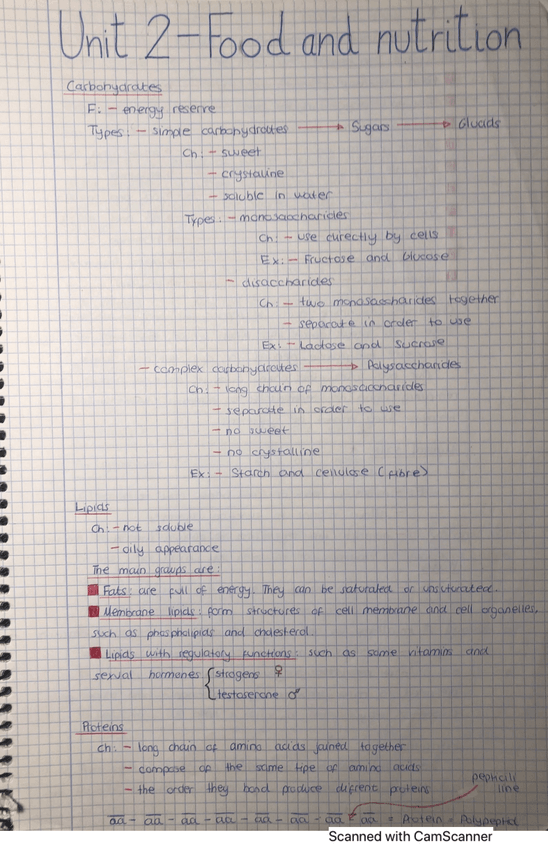 Unit 2 - Food and nutrition
Carbohydrates
F: - energy reserve
Types: - simple carbohydrates → Sugars → Glucids
Ch: - sweet
- crystaline
- soluble in water
Types: - monosaccharides
Ch: - use directly by cells
Ex: - Fructose and Glucose
- disaccharides
Ch: - two monosaccharides together
- separate in order to use
Ex: - Lactose and sucrose
- complex carbohydrates → Polysaccharides
Ch: - long chain of monosaccharides
- separate in order to use
- no sweet
- no crystalline
Ex: - Starch and cellulose (fibre)
Lipids
Ch: - not soluble
- oily appearance
The main groups are:
Fats: are full of energy. They can be saturated or unsaturated.
Membrane lipids: form structures of cell membrane and cell organelles,
such as phospholipids and cholesterol.
Lipids with regulatory functions: such as some vitamins and
sexual hormones { strogens ♀
testoserone ♂
Proteins
Ch: - long chain of amino acids joined together
- compose of the same type of amino acids
- the order they bond produce difrent proteins
line
aa - aa - aa - aa - aa - aa - aa - aa = Protein = Polypeptid
Scanned with CamScanner